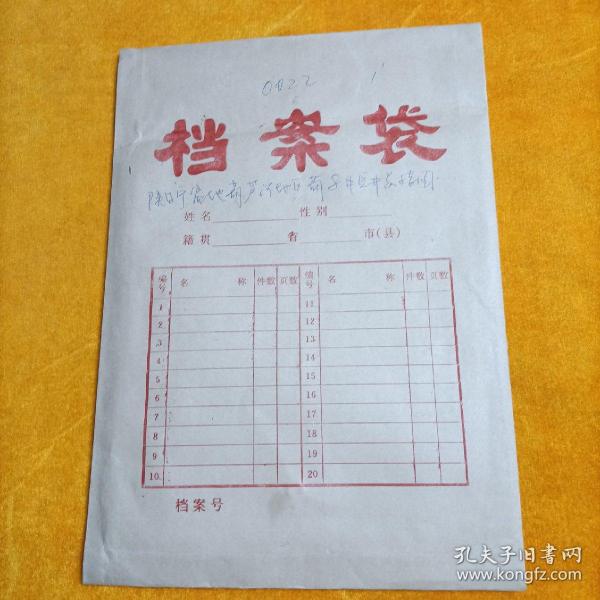 0022 1
档案袋
陕甘宁盆地葫芦河地区
姓名 性别
籍贯 省 市(县)
编号 名 称 件数 页数 编号 名 称 件数 页数
1 11
2 12
3 13
4 14
5 15
6 16
7 17
8 18
9 19
10 20
档案号
孔夫子旧书网
www.kongfz.com